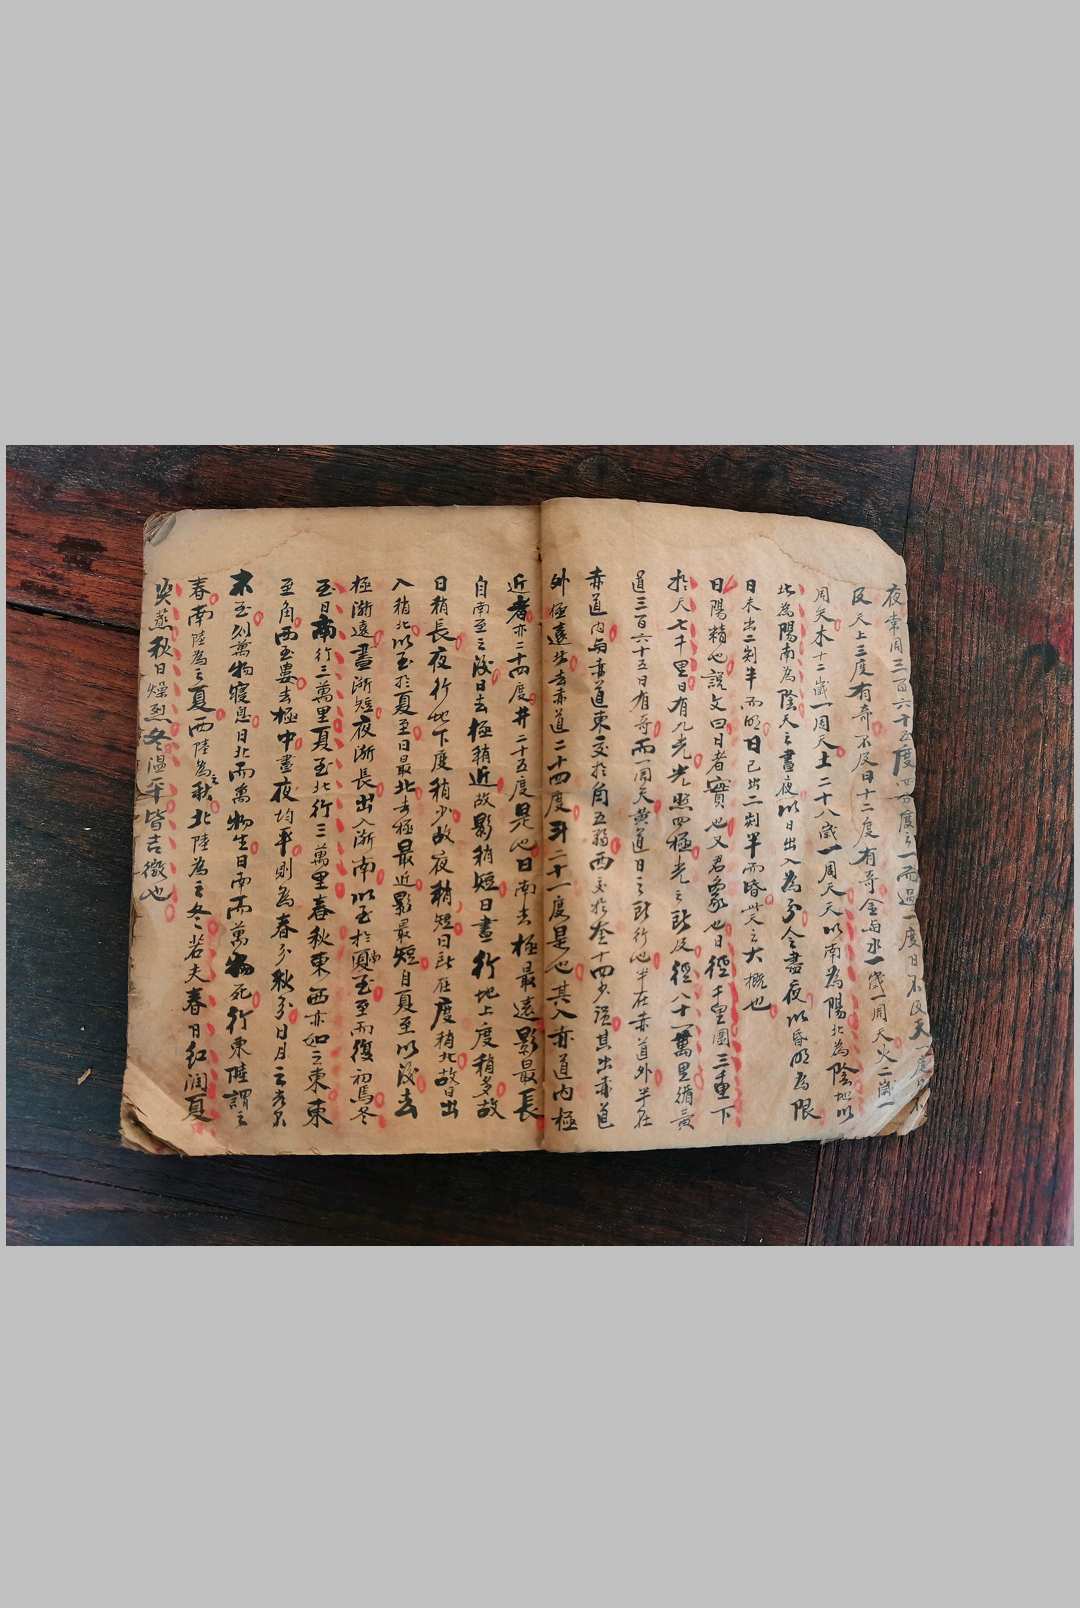 夜常周三百六十五度四分度之一而過一度日不及天一度月不
及天十三度有奇不及日十二度有奇金與水一歲一周天火二歲一
周天木十二歲一周天土二十八歲一周天天以南為陽北為陰地以
北為陽南為陰天之晝夜以日出入為分人之晝夜以昏明為限
日未出二刻半而明日已出二刻半而昏此其大概也
日陽精也說文曰日者實也又君象也日徑千里圍三千里下
於天七千里日有九光光照四極光之所及徑八十一萬里循黃
道三百六十五日有奇而一周天黃道日之所行也半在赤道外半在
赤道內與赤道東交於角五弱西交於奎十四少強其出赤道
外極遠者去赤道二十四度斗二十一度是也其入赤道內極
近者亦二十四度井二十五度是也日南去極最遠影最長
自南至之後日去極稍近故影稍短日晝行地上度稍多故
日稍長夜行地下度稍少故夜稍短日所在度稍北故日出
入稍北以至於夏至日最北去極最近影最短自夏至以後去
極漸遠晝漸短夜漸長出入漸南以至於南至而復初焉冬
至日南行三萬里夏至北行三萬里春秋東西亦如之東東
至角西至婁去極中晝夜均平則為春分秋分日月云者
木至則萬物寢息日北而萬物生日南而萬物死行東陸謂之
春南陸為之夏西陸為之秋北陸為之冬若夫春日紅潤夏
炎蒸秋日燥烈冬溫平皆吉徵也